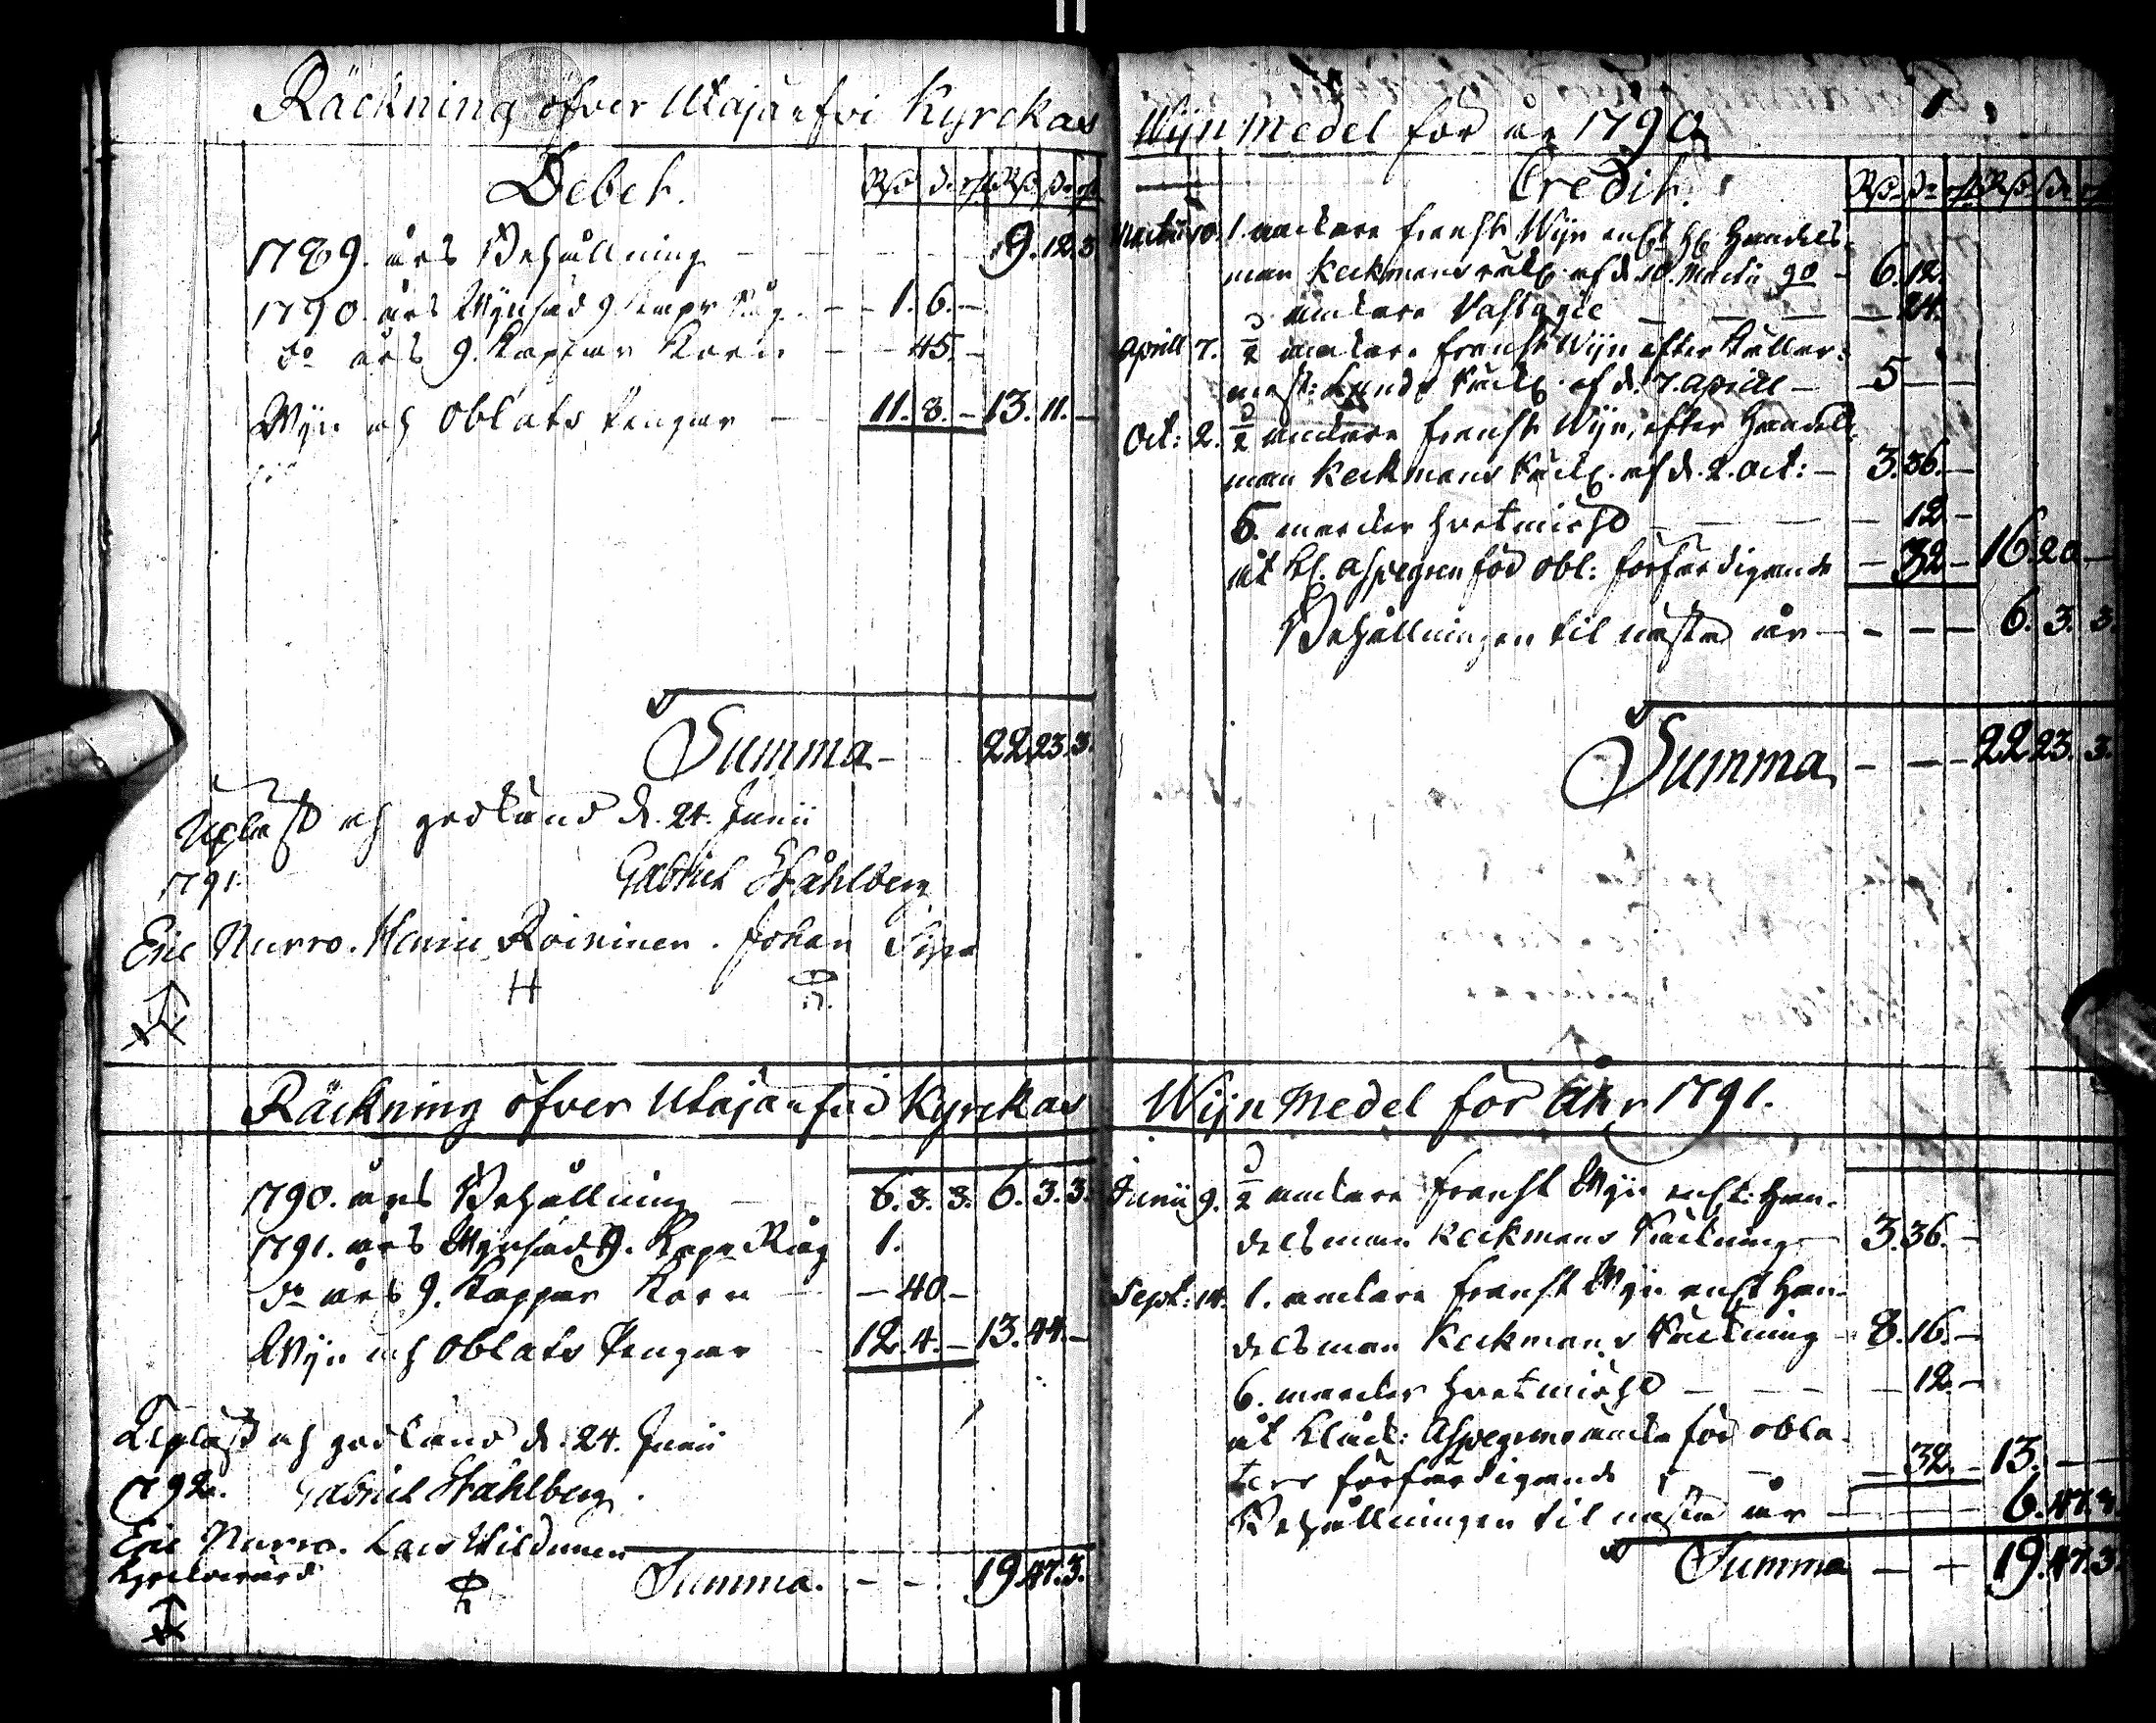 Räckning öfver Utajärfvi Kyrckas
Debet. Rd. s. rst. Rd. s. rst.
1789. års Behållning — 9. 12. 3
1790. års Wijnsäd 9 kapr Råg. — 1. 6. —
do års 9. Kappar Korn — 45. —
Wijn och Oblats Pengar — 11. 8. — 13. 11. —
Summa — 22. 23. 3.
Upläst och godkänd d. 24. Junii
1791.
Gabriel Ståhlberg
Eric Nurro. Henric Roininen. Johan
H
Räckning öfver Utajärfvi Kyrckas
1790. års Behållning — 6. 3. 3. 6. 3. 3.
1791. års Wijnsäd 9. Kapr Råg 1.
do års 9. Kappar Korn — 40. —
Wijn och Oblats Pengar — 12. 4. — 13. 44. —
Upläst och godkänd d. 24. Junii
1792. Gabriel Ståhlberg.
Eric Nurro. Lars
Kyrckovärd
Summa. — — 19. 47. 3.
Wijn Medel för år 1790.
Credit. Rd. s. rst. Rd. s. rst.
Martii 10. 1. anckare franskt Wijn enligt Hr Handels-
man Keckmans räkn. af d. 10. Martii 90 — 6. 12.
anckare Fastagie — — — 24.
Aprill 7. ½ anckare franskt Wijn efter Källar-
mest: Lunds Räkn. af d. 7. Aprill — 5 — —
Oct: 2. ½ anckare franskt Wijn, efter Handels-
man Keckmans Räkn. af d. 2. Oct: — 3. 36. —
6. marcker hvetmiöhl — — — 12 —
åt Kl. Aspegren för Obl: förfärdigande — 32 — 16. 20. —
Behållningen til nästa år — — — — 6. 3. 3.
Summa — — — 22. 23. 3.
Wijn Medel för Åhr 1791.
Junii 9. ½ anckare franskt Wijn enligt Han-
delsman Keckmans Räckning — 3. 36. —
Sept: 14. 1. anckare franskt Wijn enligt Han-
delsman Keckmans Räckning — 8. 16. —
6. marcker hvetmiöhl — — — — 12. —
åt Klock: Aspegrens för obla-
ters förfärdigande — — — 32. — 13. — —
Behållningen til nästa år — — — 6. 47. 3
Summa — — 19. 47. 3.